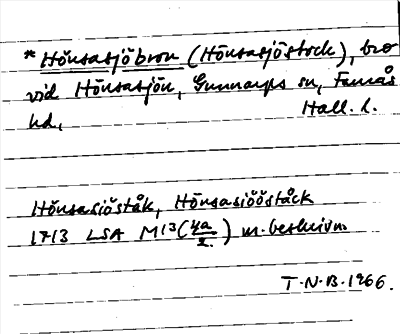 * Hönsasjöbron (Hönsasjöstock), bro
vid Hönsasjön, Gunnarps sn, Faurås
hd, Hall. l.
Hönsasiöståk, Hönsasiööståck
1713 LSA M13 (4a/2) m. beskrivn.
T.N.B. 1966.